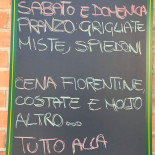 SABATO E DOMENICA
PRANZO: GRIGLIATE
MISTE, SPIEDONI
CENA FIORENTINE,
COSTATE E MOLTO
ALTRO...
TUTTO ALLA